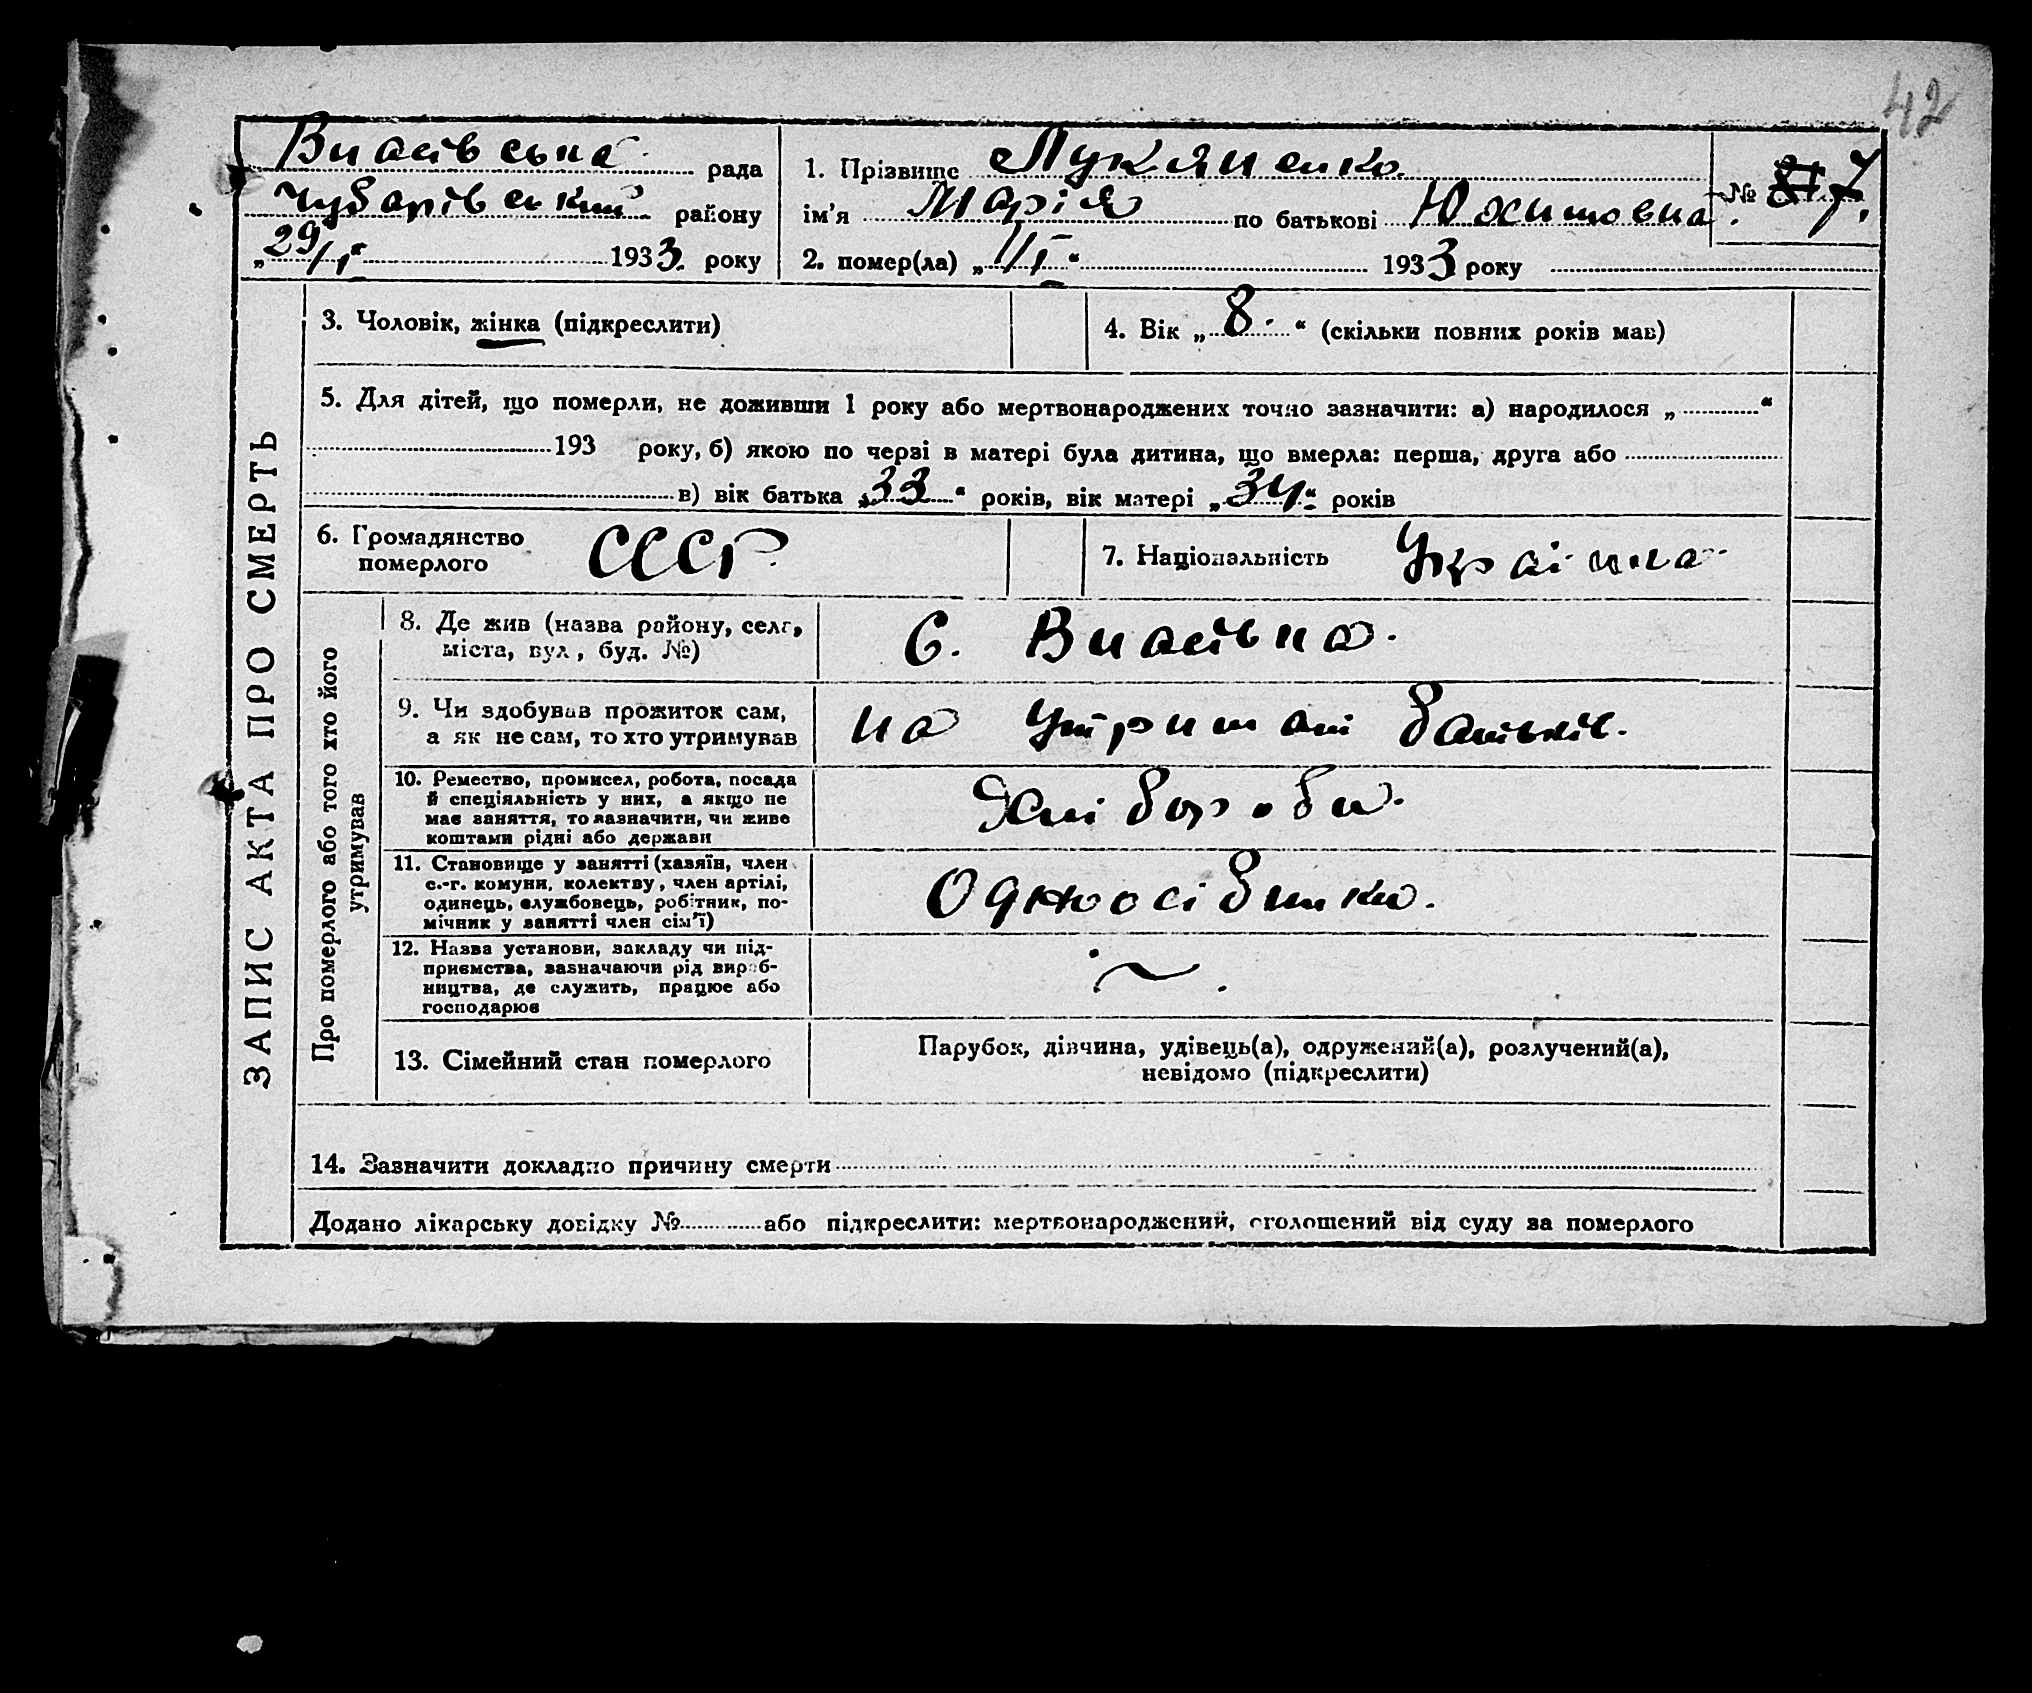 42
Власівська рада
Чубарівський району
„29/I“ 1933 року
1. Прізвище Лукяненко
ім’я Марія по батькові Юхимовна.
2. помер(ла) „1/I“ 1933 року
№ 7.
ЗАПИС АКТА ПРО СМЕРТЬ
3. Чоловік, жінка (підкреслити)
4. Вік „8“ (скільки повних років мав)
5. Для дітей, що померли, не доживши 1 року або мертвонароджених точно зазначити: а) народилося „ “
193 року, б) якою по черзі в матері була дитина, що вмерла: перша, друга або
в) вік батька „33“ років, вік матері „34“ років
6. Громадянство
померлого
СССР
7. Національність Українка
Про померлого або того хто його
утримував
8. Де жив (назва району, села,
міста, вул., буд. №)
С. Власівка.
9. Чи здобував прожиток сам,
а як не сам, то хто утримував
на утримані батьків.
10. Ремество, промисел, робота, посада
й спеціяльність у них, а якщо не
має заняття, то назначити, чи живе
коштами рідні або держави
Хлібороби.
11. Становище у занятті (хазяїн, член
с.-г. комуни, колектву, член артілі,
одинець, службовець, робітник, по-
мічник у занятті член сім’ї)
Одноосібники.
12. Назва установи, закладу чи під-
приємства, зазначаючи рід вироб-
ництва, де служить, працює або
господарює
13. Сімейний стан померлого
Парубок, дівчина, удівець(а), одружений(а), розлучений(а),
невідомо (підкреслити)
14. Зазначити докладно причину смерти
Додано лікарську довідку № або підкреслити: мертвонароджений, оголошений від суду за померлого